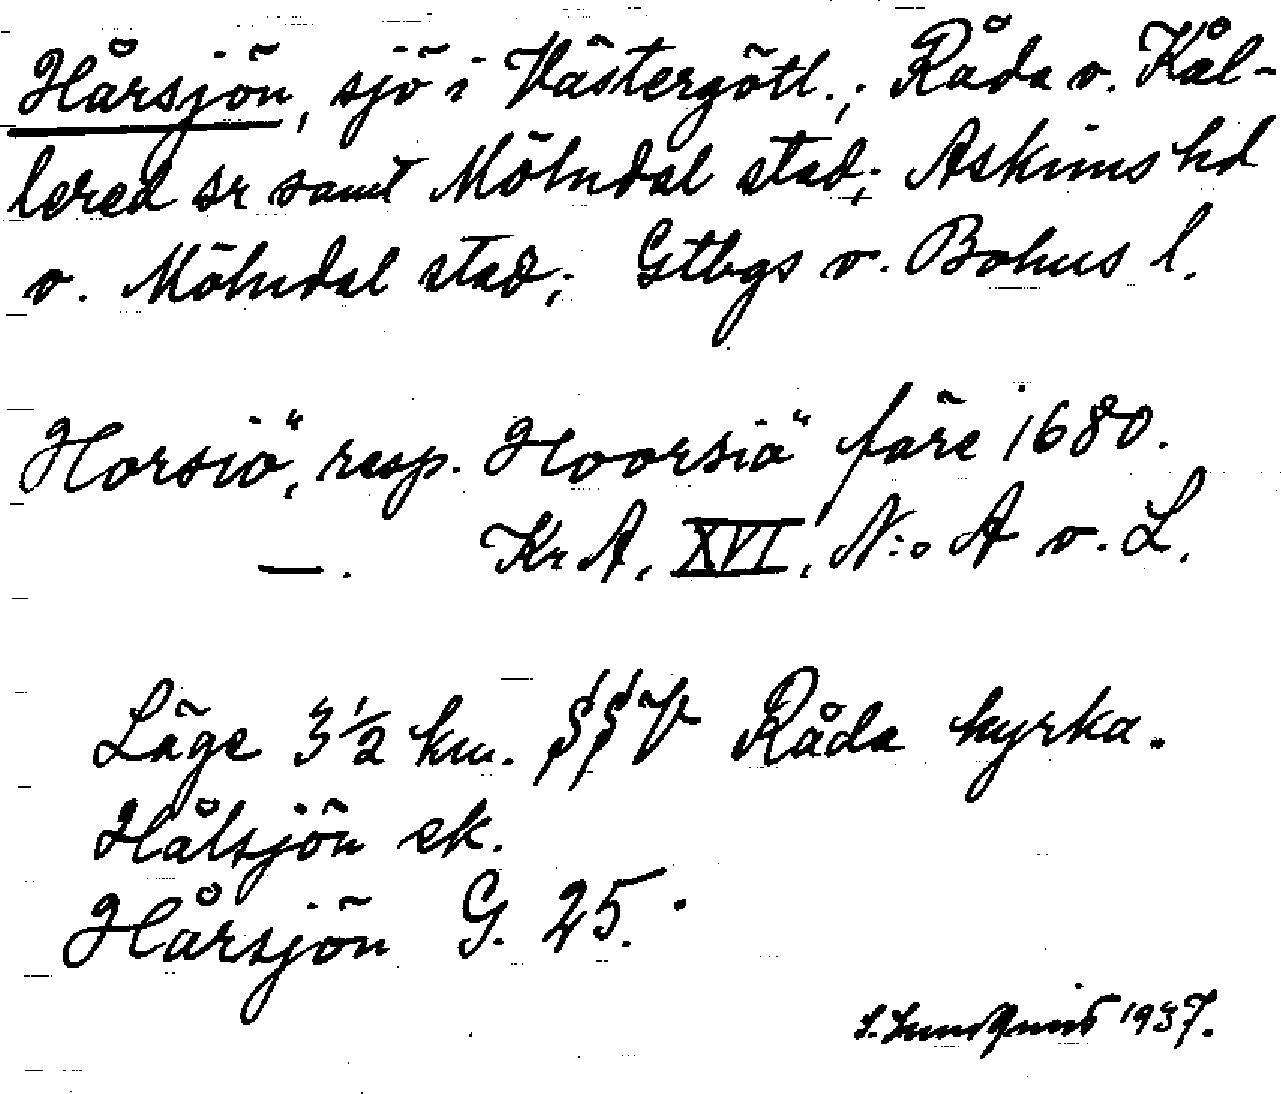 Hårsjön, sjö i Västergötl.; Råda o. Kål-
lered sr samt Mölndal stad; Askims hd
o. Mölndal stad; Gtbgs o. Bohus l.
Horsiö", resp. Hoorsiö" före 1680.
—. Kr A, XVI, N:o A o. L.
Läge 3 1/2 km. SSV Råda kyrka.
Hålsjön ek.
Hårsjön G. 25.
S. Lundquist 1937.